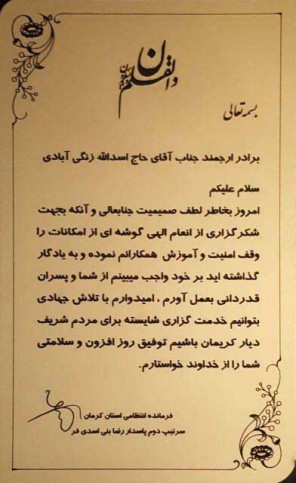 ن والقلم و ما یسطرون
بسمه تعالی
برادر ارجمند جناب آقای حاج اسدالله زنگی آبادی
سلام علیکم
امروز بخاطر لطف صمیمیت جنابعالی و آنکه بجهت
شکرگزاری از انعام الهی گوشه ای از امکانات را
وقف امنیت و آموزش همکارانم نموده و به یادگار
گذاشته اید بر خود واجب میبینم از شما و پسران
قدردانی بعمل آورم ، امیدوارم با تلاش جهادی
بتوانیم خدمت گزاری شایسته برای مردم شریف
دیار کریمان باشیم توفیق روز افزون و سلامتی
شما را از خداوند خواستارم.
فرمانده انتظامی استان کرمان
سرتیپ دوم پاسدار رضا بنی اسدی فر